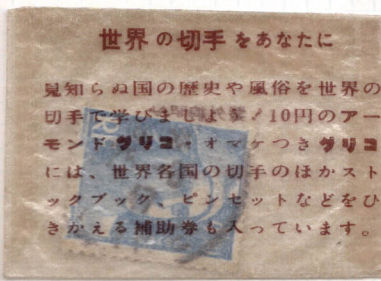 世界の切手をあなたに
見知らぬ国の歴史や風俗を世界の
切手で学びましょう！10円のアー
モンドグリコ・オマケつきグリコ
には、世界各国の切手のほかスト
ックブック、ピンセットなどをひ
きかえる補助券も入っています。